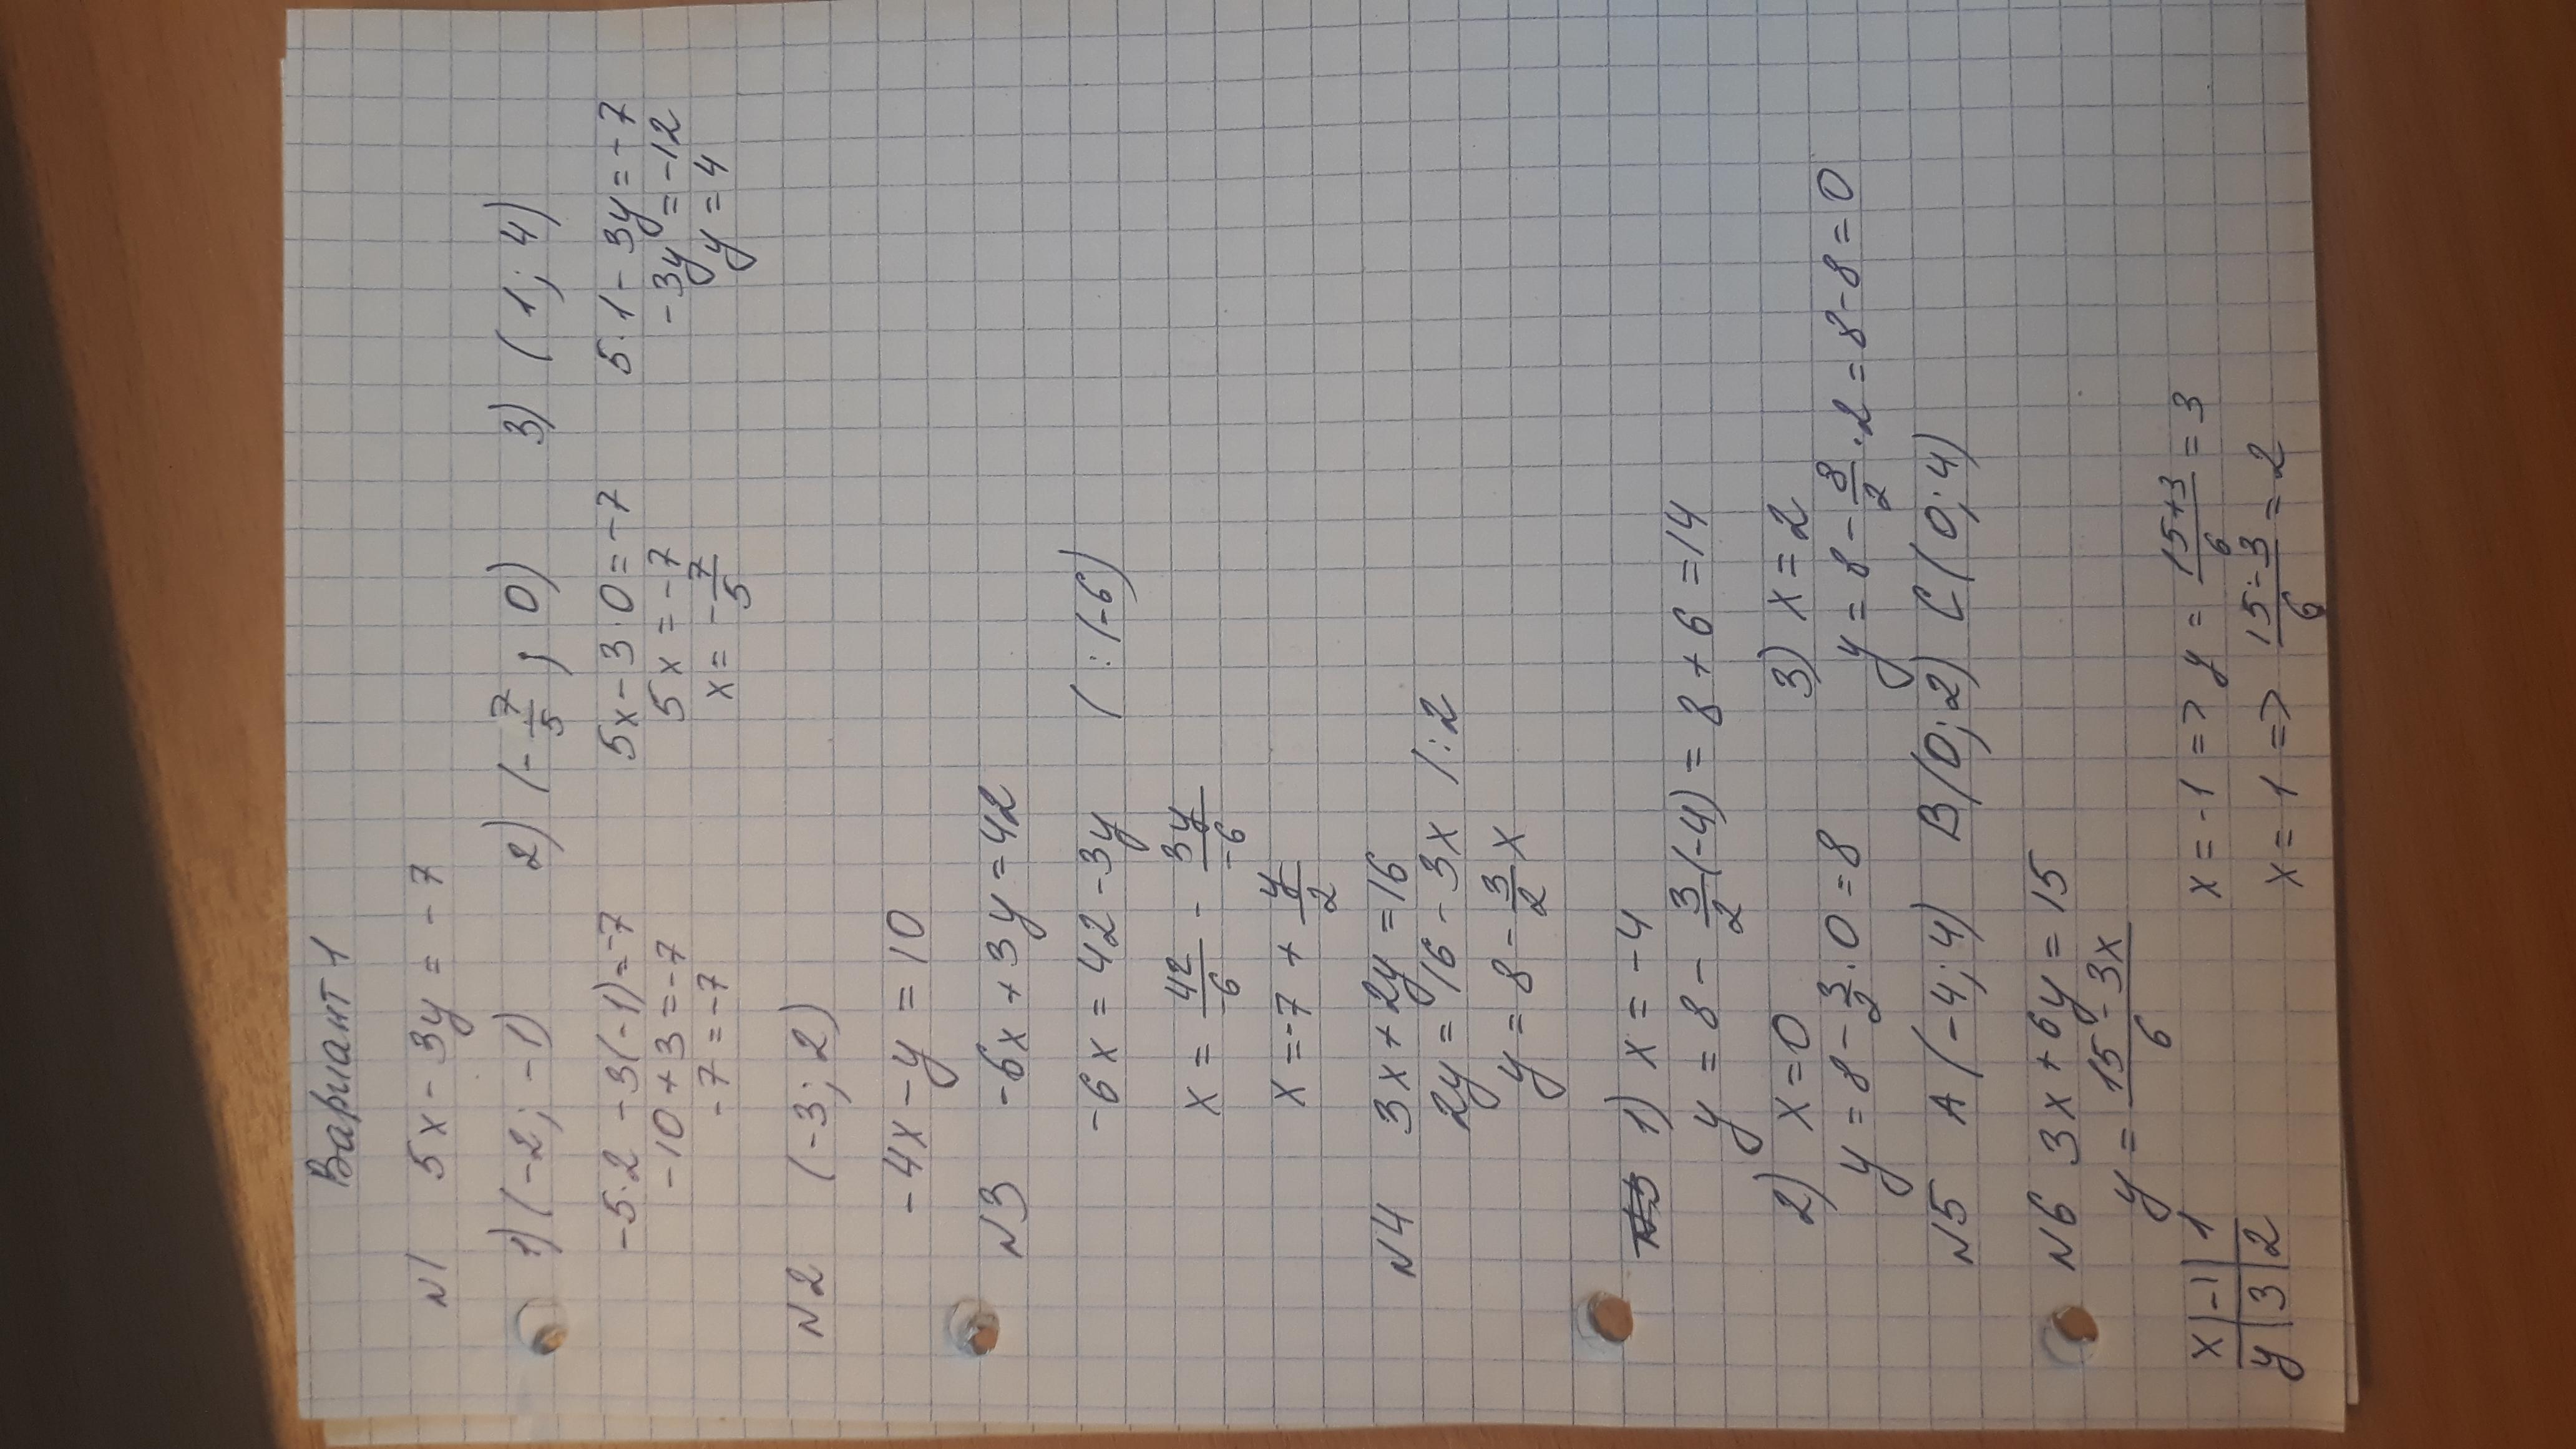 Вариант 1
N1 5x - 3y = -7
1) (-2; -1) 2) (-7/5; 0) 3) (1; 4)
-5·2 -3(-1)=-7 5x-3·0=-7 5·1-3y=-7
-10+3=-7 5x=-7 -3y=-12
-7=-7 x=-7/5 y=4
N2 (-3; 2)
-4x-y=10
N3 -6x+3y=42
-6x=42-3y (:(-6)
x = 42/-6 - 3y/-6
x=-7+y/2
N4 3x+2y=16
2y=16-3x /:2
y=8-3/2x
1) x=-4
y=8-3/2(-4)=8+6=14
2) x=0 3) x=2
y=8-3/2·0=8 y=8-8/2·2=8-8=0
N5 A(-4;4) B(0;2) C(0;4)
N6 3x+6y=15
y=15-3x/6
x|-1|1 x=-1=> y=15+3/6=3
y|3|2 x=1=> 15-3/6=2